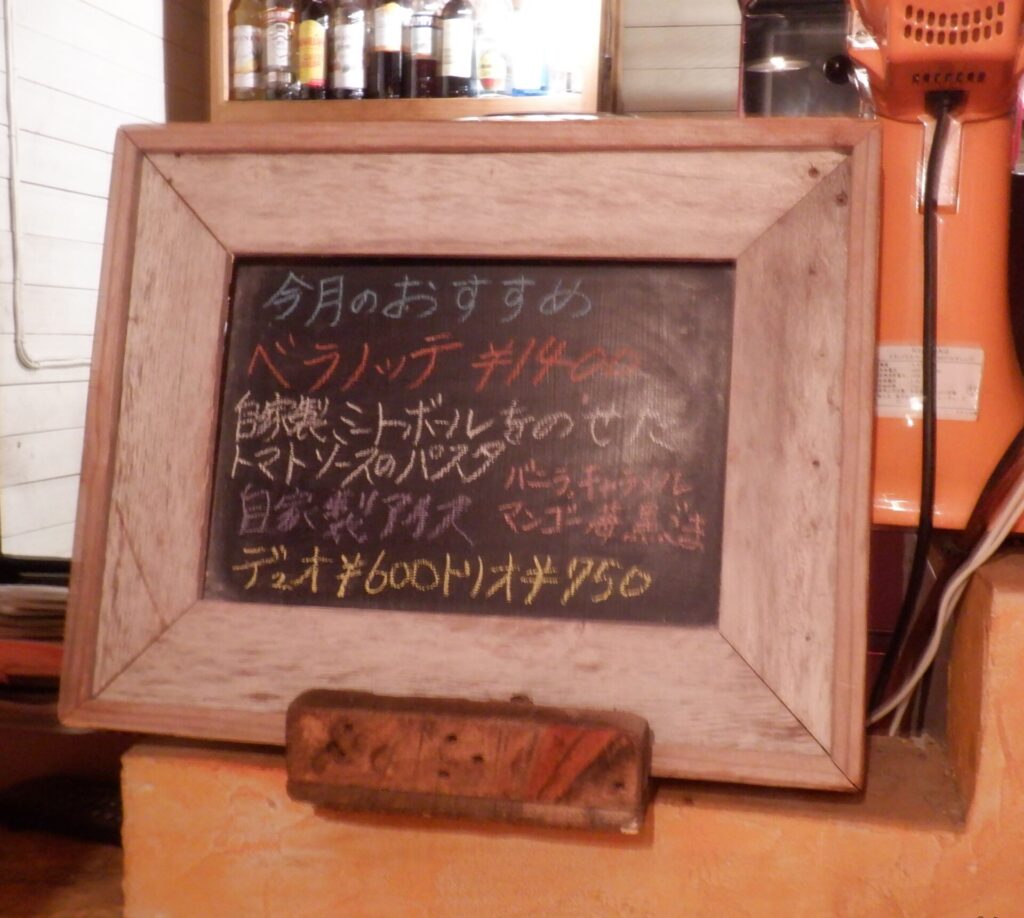 今月のおすすめ
ベラノッテ ¥1400
自家製ミートボールをのせた
トマトソースのパスタ
自家製アイス
バニラ、キャラメル
マンゴー苺黒ごま
デュオ¥600トリオ¥750